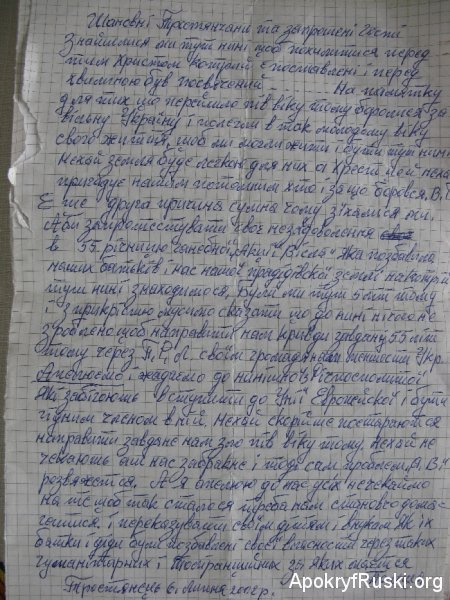 Шановні Тростянчани та запрошені Гості
Знайшлися ми тут нині щоб похилитися перед
тим Христом котрий є поставлені і перед
хвилиною був посвячений. На памятку
для тих що перейшло пів віку тому боролися за
вільну Україну і полягли в так молодому віку
свого життя, щоб ми могли жити і бути тут нині
Нехай земля буде легкою для них а Хрест цей неха
пригадує нашим потомкам хто і за що боровся,
Є ще друга причина сумна чому з'їхалися ми.
Аби запротестувати своє незадоволення
в 55 річницю ганебної „Акції Вісла" яка позбавила
наших батьків і нас нашої прадідівської землі на котрій
тут нині знаходимося, були ми тут 5 літ тому
і з прикрістю мушу сказати що до нині нічого не
зроблено щоб направити нам кривди завдану 55 літ
тому через П, Р, Л. своїм громадянам меншости Укр.
Апелюємо і жадаємо до нинішної Річипосполитої
які забігають вступити до Унії Європейскої і бути
гідним членом в ній. Нехай скорійше постараються
направити завдане нам зло пів віку тому. Нехай не
чекають аж нас забракне і тоді сам проблем А, В,
розвяжется, А я апелюю до нас усіх нечекаймо
на те щоб так сталося треба нам становчо дома-
гатися і переказувати своїм дітям і внукам як їх
батьки і діди були позбавлені своєї власності через таких
гуманітарних і
Тростянець 6. Липня 2002 р.
ApokryfRuski.org